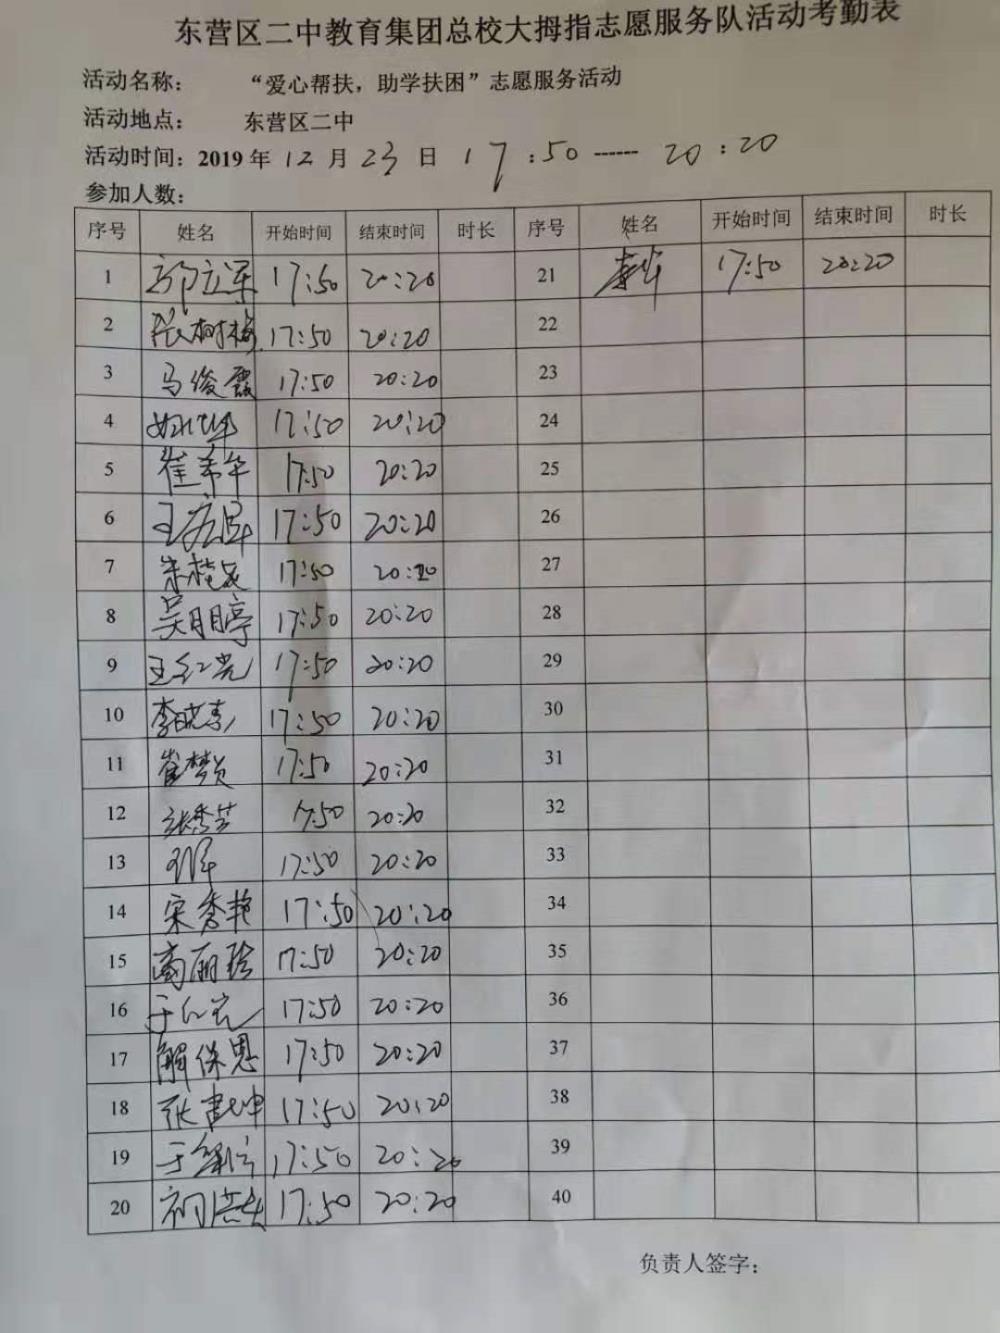 东营区二中教育集团总校大拇指志愿服务队活动考勤表
活动名称： “爱心帮扶，助学扶困”志愿服务活动
活动地点： 东营区二中
活动时间：2019 年 12 月 23 日 17 :50 ------ 20 : 20
参加人数：
序号 姓名 开始时间 结束时间 时长 序号 姓名 开始时间 结束时间 时长
1 郭立军 17:50 20:20 21 17:50 20:20
2 张树梅 17:50 20:20 22
3 马俊霞 17:50 20:20 23
4 17:50 20:20 24
5 崔希华 17:50 20:20 25
6 17:50 20:20 26
7 17:50 20:20 27
8 吴明亭 17:50 20:20 28
9 王红光 17:50 20:20 29
10 17:50 20:20 30
11 17:50 20:20 31
12 张秀芸 17:50 20:20 32
13 17:50 20:20 33
14 宋秀艳 17:50 20:20 34
15 高丽珍 17:50 20:20 35
16 17:50 20:20 36
17 解保恩 17:50 20:20 37
18 张建坤 17:50 20:20 38
19 17:50 20:20 39
20 17:50 20:20 40
负责人签字：